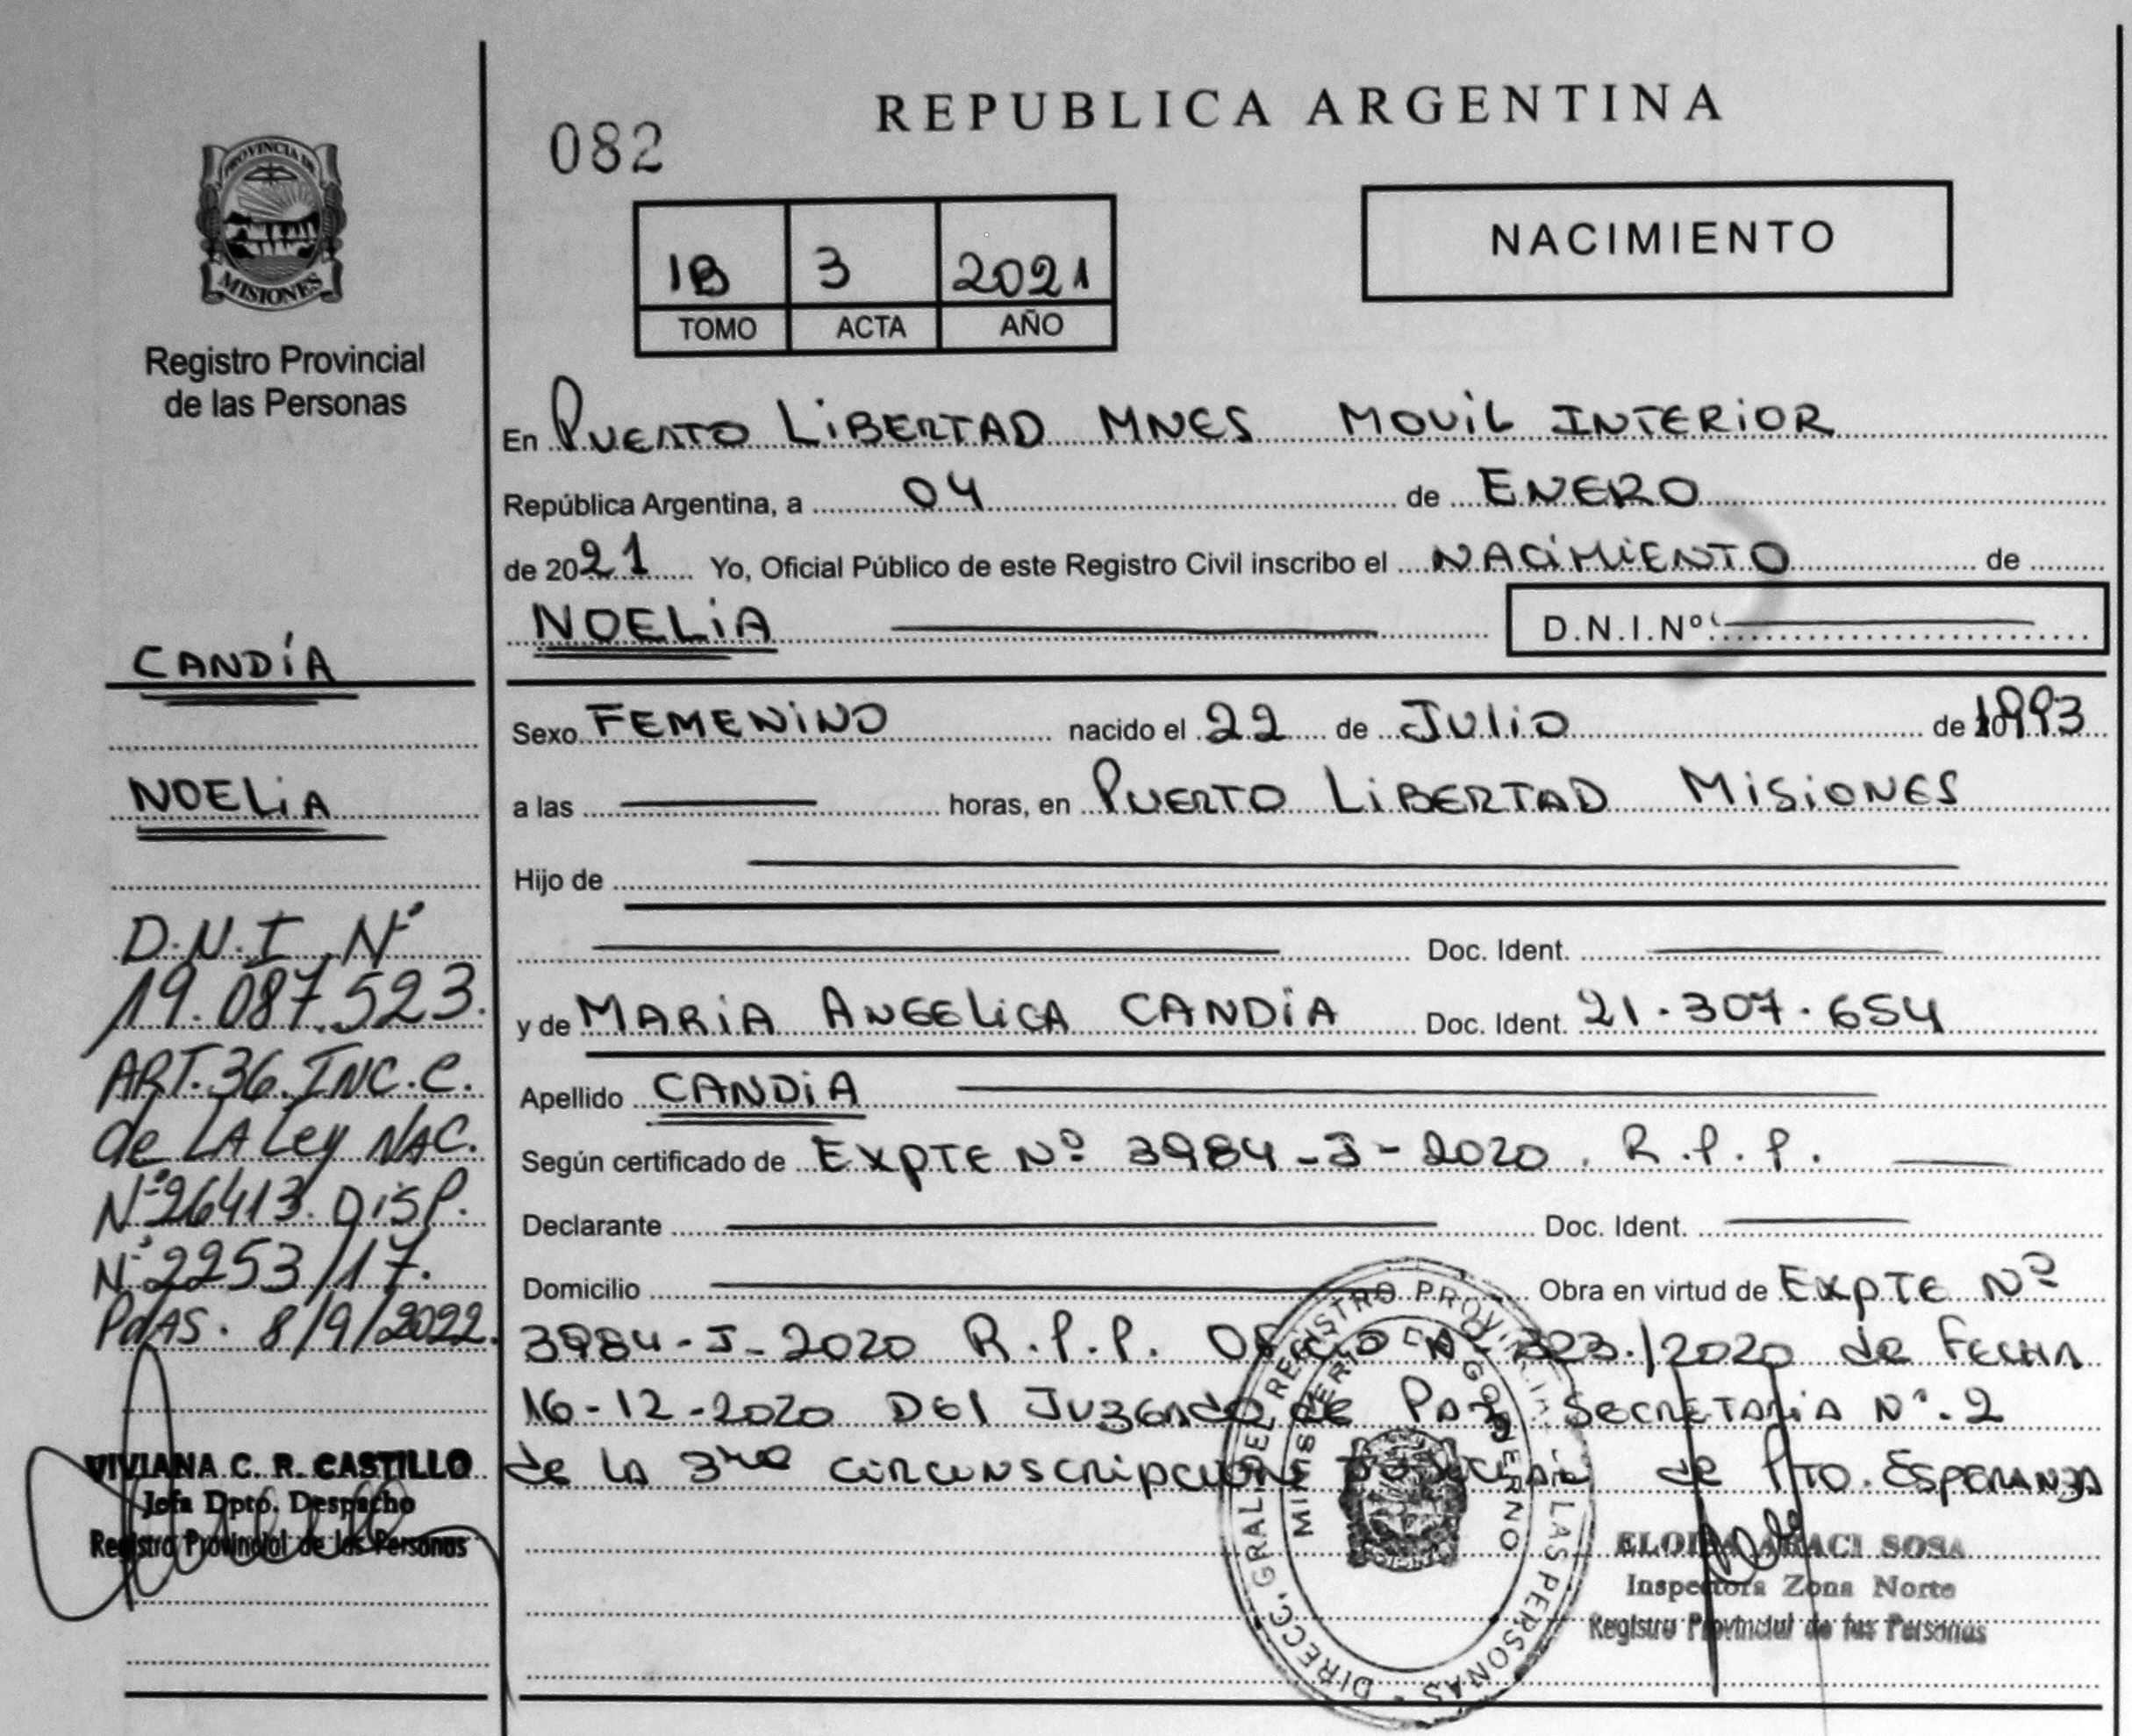 REPUBLICA ARGENTINA
082
PROVINCIA DE
MISIONES
Registro Provincial
de las Personas
1B 3 2021
TOMO ACTA AÑO
NACIMIENTO
En PUERTO LIBERTAD MNES MOVIL INTERIOR
República Argentina, a 04 de ENERO
de 2021 Yo, Oficial Público de este Registro Civil inscribo el NACIMIENTO de
NOELIA D.N.I.Nº
Sexo FEMENINO nacido el 22 de JULIO de 1993
a las horas, en PUERTO LIBERTAD MISIONES
Hijo de
Doc. Ident.
y de MARIA ANGELICA CANDIA Doc. Ident. 21.307.654
Apellido CANDIA
Según certificado de EXPTE Nº 3984-J-2020. R.P.P.
Declarante Doc. Ident.
Domicilio Obra en virtud de EXPTE Nº
3984-J-2020 R.P.P. OFICIO Nº 323./2020 de FECHA
16-12-2020 DEl JUZGADO de PAZ SECRETARIA Nº.2
de LA 3ra CIRCUNSCRIPCION JUDICIAL de PTO. ESPERANZA
CANDÍA
NOELIA
D.N.I. Nº
19.087.523.
ART.36.INC.C.
de LA Ley NAC.
Nº26413. DISP.
Nº2253/17.
PdAS. 8/9/2022.
VIVIANA C. R. CASTILLO
Jefa Dpto. Despacho
Registro Provincial de las Personas
DIRECC. GRAL. DEL REGISTRO PROVINCIAL DE LAS PERSONAS
MINISTERIO DE GOBIERNO
ARACI SOSA
Inspectora Zona Norte
Registro Provincial de las Personas